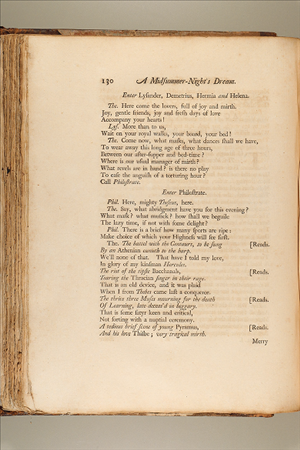 130 A Midsummer-Night's Dream.
Enter Lysander, Demetrius, Hermia and Helena.
The. Here come the lovers, full of joy and mirth.
Joy, gentle friends, joy and fresh days of love
Accompany your hearts!
Lys. More than to us,
Wait on your royal walks, your board, your bed!
The. Come now, what masks, what dances shall we have,
To wear away this long age of three hours,
Between our after-supper and bed-time?
Where is our usual manager of mirth?
What revels are in hand? is there no play
To ease the anguish of a torturing hour?
Call Philostrate.
Enter Philostrate.
Phil. Here, mighty Theseus, here.
The. Say, what abridgment have you for this evening?
What mask? what musick? how shall we beguile
The lazy time, if not with some delight?
Phil. There is a brief how many sports are ripe:
Make choice of which your Highness will see first.
The. The battel with the Centaurs, to be sung [Reads.
By an Athenian eunuch to the harp.
We'll none of that. That have I told my love,
In glory of my kinsman Hercules.
The riot of the tipsie Bacchanals, [Reads.
Tearing the Thracian singer in their rage.
That is an old device, and it was plaid
When I from Thebes came last a conqueror.
The thrice three Muses mourning for the death [Reads.
Of Learning, late deceas'd in beggary.
That is some satyr keen and critical,
Not sorting with a nuptial ceremony.
A tedious brief scene of young Pyramus, [Reads.
And his love Thisbe; very tragical mirth.
Merry